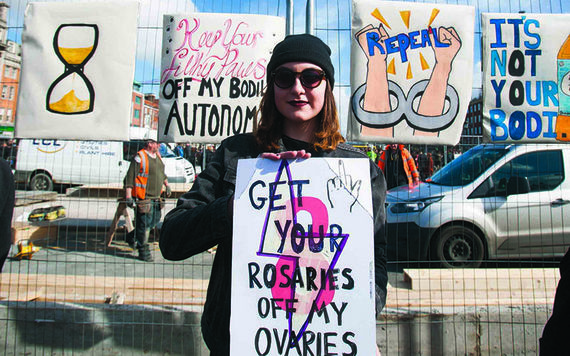 Keep Your
Filthy Paws
OFF MY BODIL
AUTONOM
REPEAL
IT'S
NOT
YOUR
BODI
GET
YOUR
ROSARIES
OFF MY
OVARIES